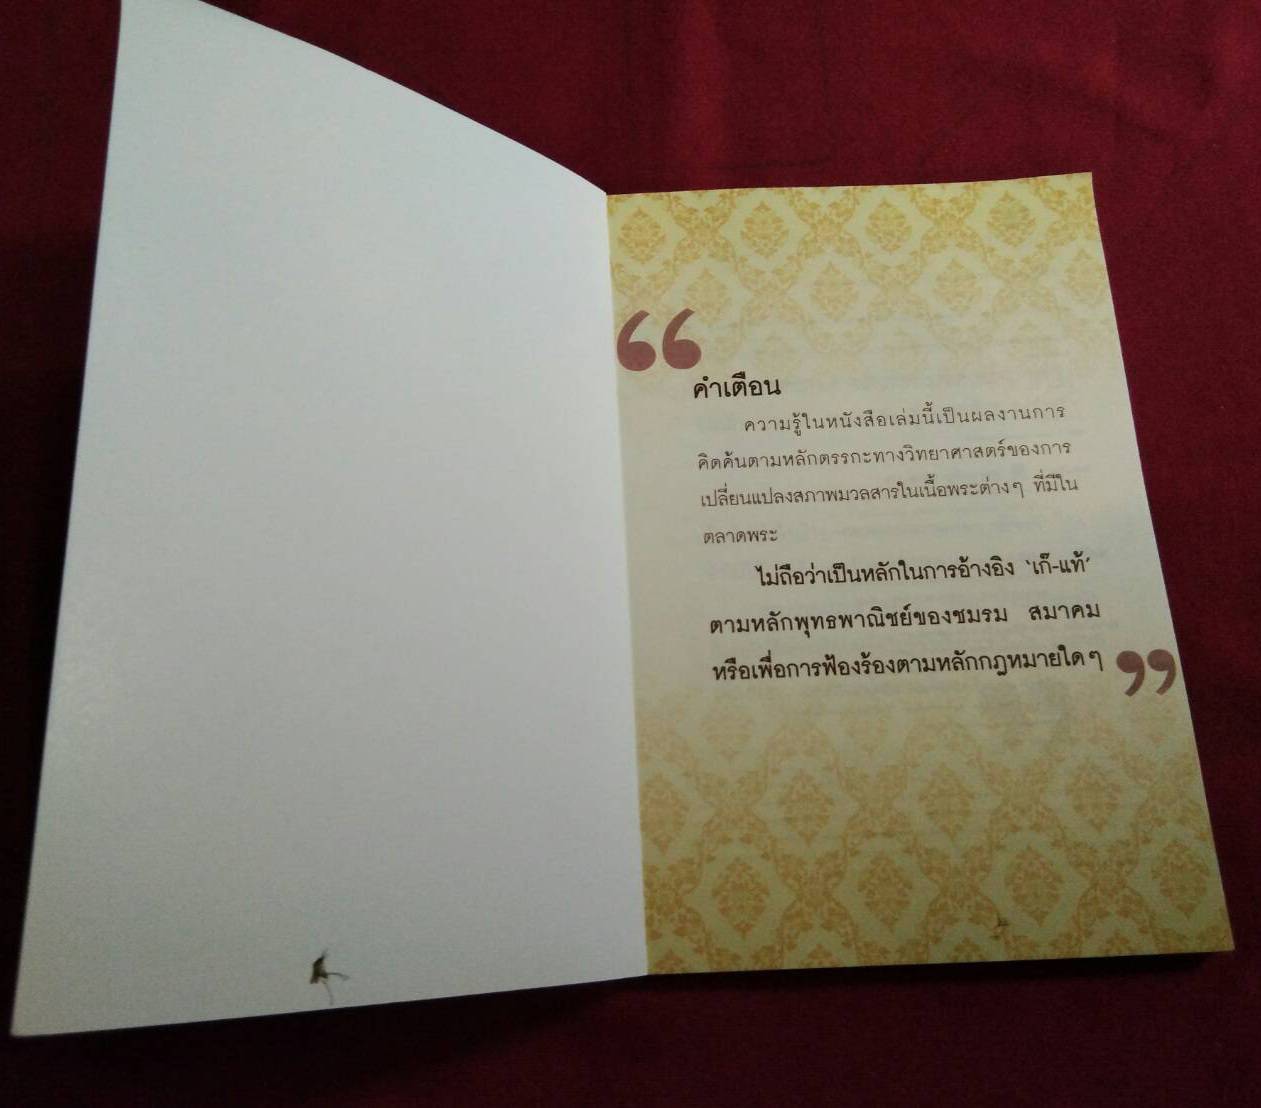 “
คำเตือน
ความรู้ในหนังสือเล่มนี้เป็นผลงานการ
คิดค้นตามหลักตรรกะทางวิทยาศาสตร์ของการ
เปลี่ยนแปลงสภาพมวลสารในเนื้อพระต่างๆ ที่มีใน
ตลาดพระ
ไม่ถือว่าเป็นหลักในการอ้างอิง ‘เก๊-แท้’
ตามหลักพุทธพาณิชย์ของชมรม สมาคม
หรือเพื่อการฟ้องร้องตามหลักกฎหมายใดๆ ”